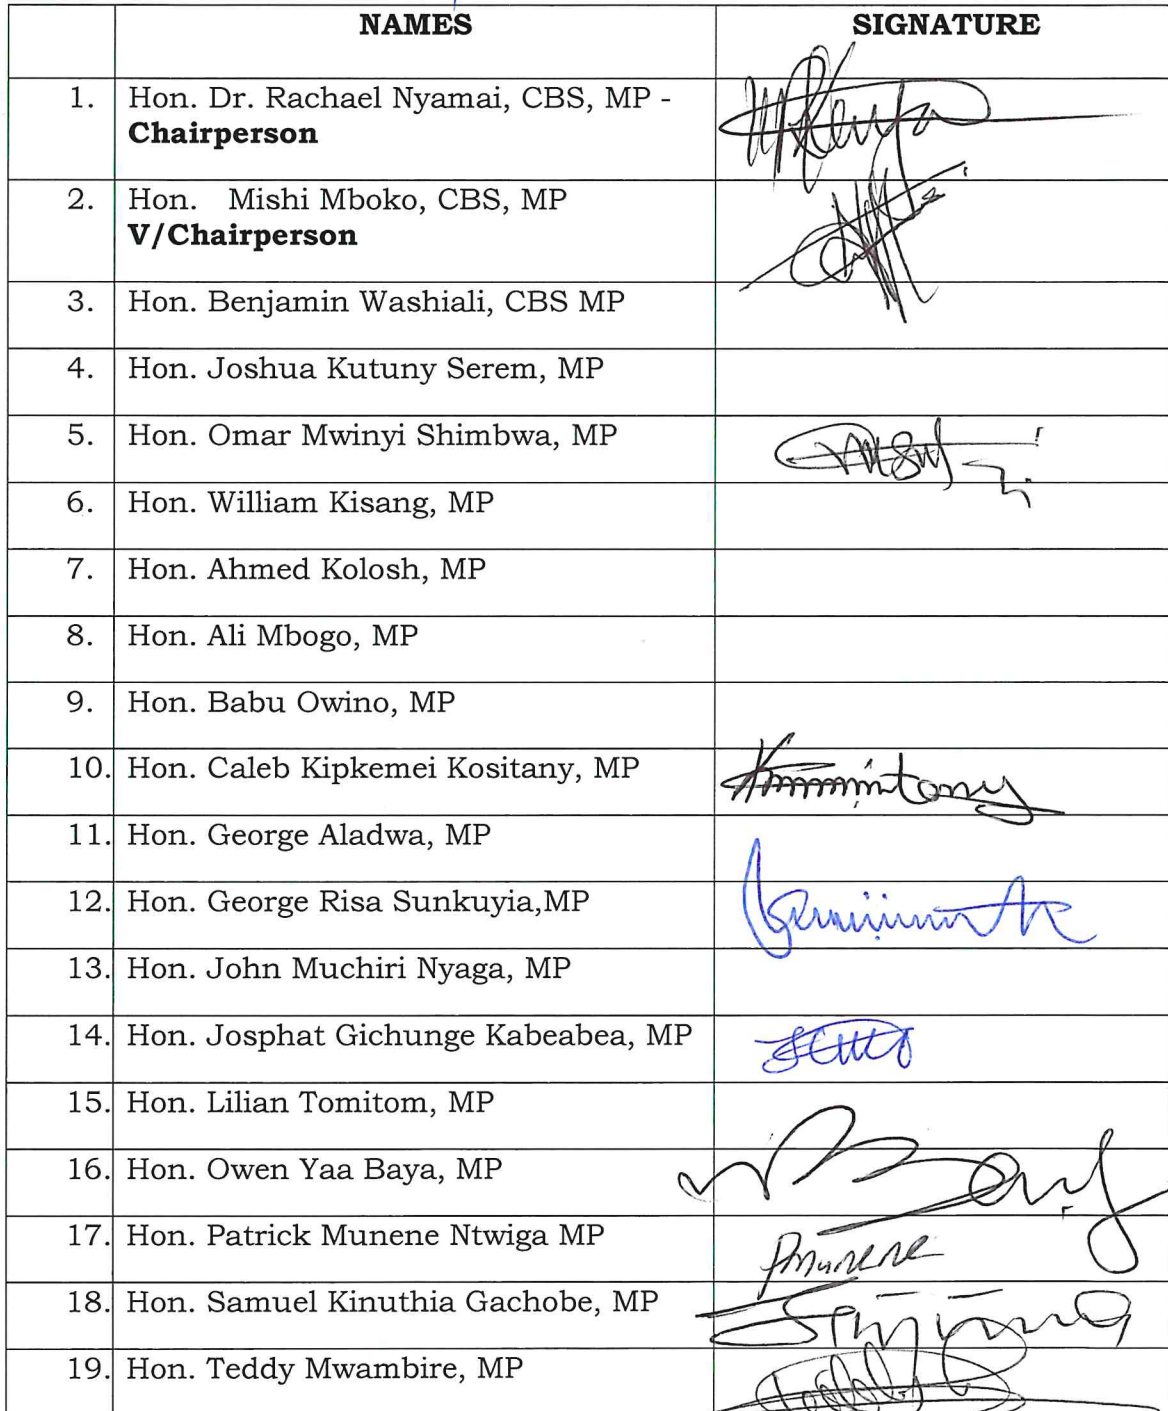 NAMES SIGNATURE
1. Hon. Dr. Rachael Nyamai, CBS, MP -
Chairperson
2. Hon. Mishi Mboko, CBS, MP
V/Chairperson
3. Hon. Benjamin Washiali, CBS MP
4. Hon. Joshua Kutuny Serem, MP
5. Hon. Omar Mwinyi Shimbwa, MP
6. Hon. William Kisang, MP
7. Hon. Ahmed Kolosh, MP
8. Hon. Ali Mbogo, MP
9. Hon. Babu Owino, MP
10. Hon. Caleb Kipkemei Kositany, MP
11. Hon. George Aladwa, MP
12. Hon. George Risa Sunkuyia,MP
13. Hon. John Muchiri Nyaga, MP
14. Hon. Josphat Gichunge Kabeabea, MP
15. Hon. Lilian Tomitom, MP
16. Hon. Owen Yaa Baya, MP
17. Hon. Patrick Munene Ntwiga MP Pmunene
18. Hon. Samuel Kinuthia Gachobe, MP
19. Hon. Teddy Mwambire, MP